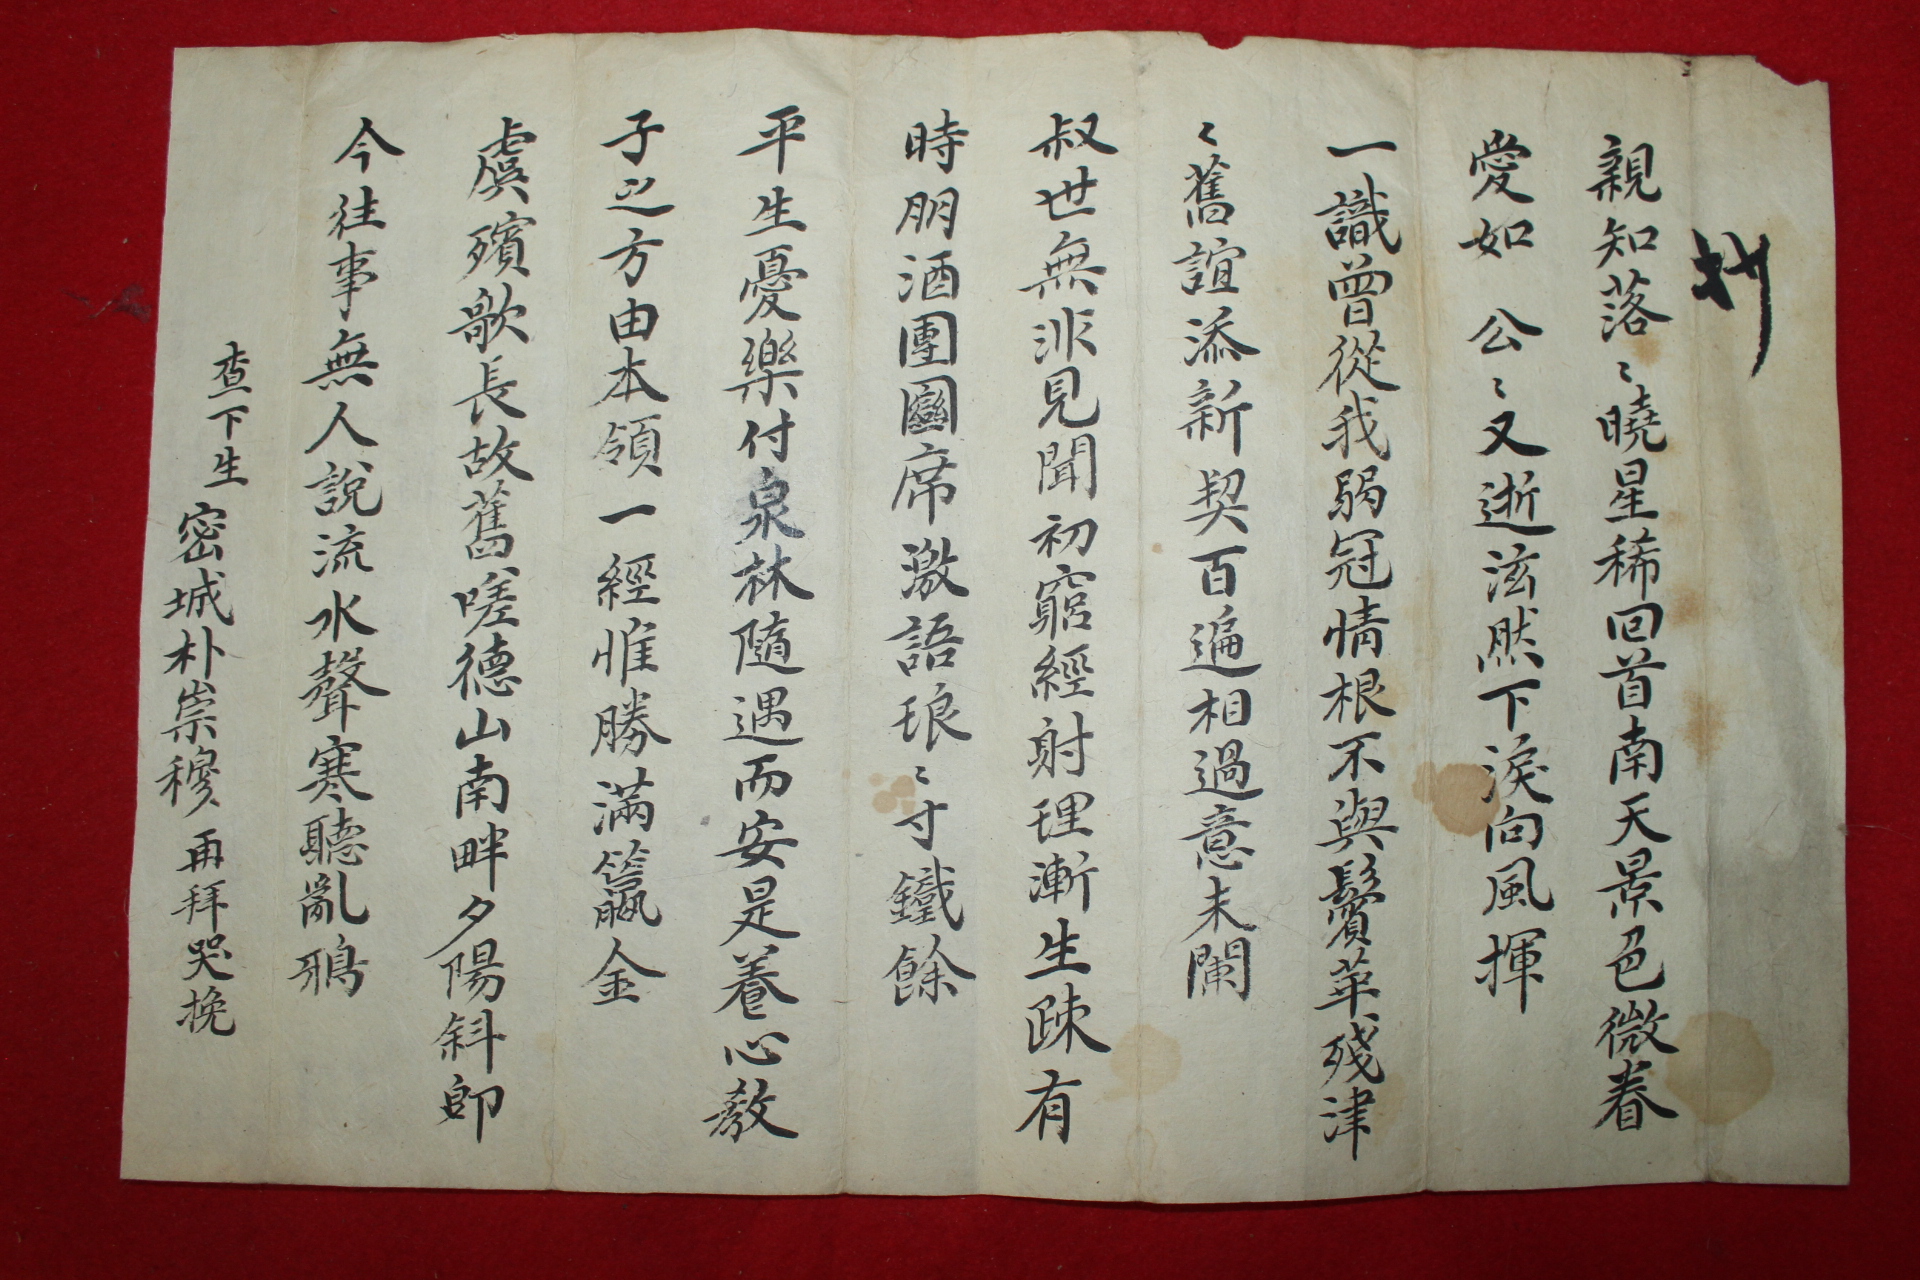 抄
親知落〻曉星稀回首南天景色微眷
愛如 公〻又逝泫然下淚向風揮
一識曾從我弱冠情根不與鬢華殘津
〻舊誼添新契百遍相過意未闌
叔世無非見聞初窮經射理漸生疎有
時朋酒團圝席激語琅〻寸鐵餘
平生憂樂付泉林隨遇而安是養心教
子之方由本領一經惟勝滿籝金
虞殯歌長故舊嗟德山南畔夕陽斜卽
今往事無人說流水聲寒聽亂鴉
查下生 密城朴崇穆 再拜哭挽